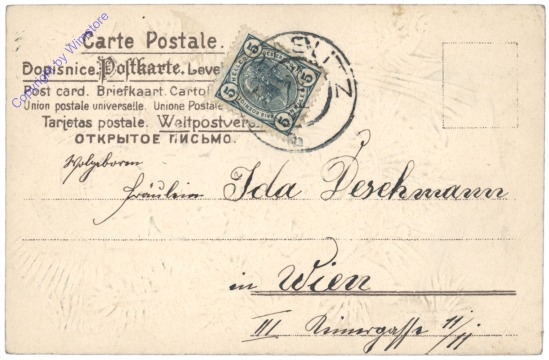 Copyright by Winstore
Carte Postale.
Dopisnice. Postkarte. Level
Post card. Briefkaart. Cartol
Union postale universelle. Unione Postale
Tarjetas postale. Weltpostver
ОТКРЫТОЕ ПИСЬМО.
5 5
5 5
Wolgeboren
Fräulein Ida Deschmann
in Wien
III. 11/11